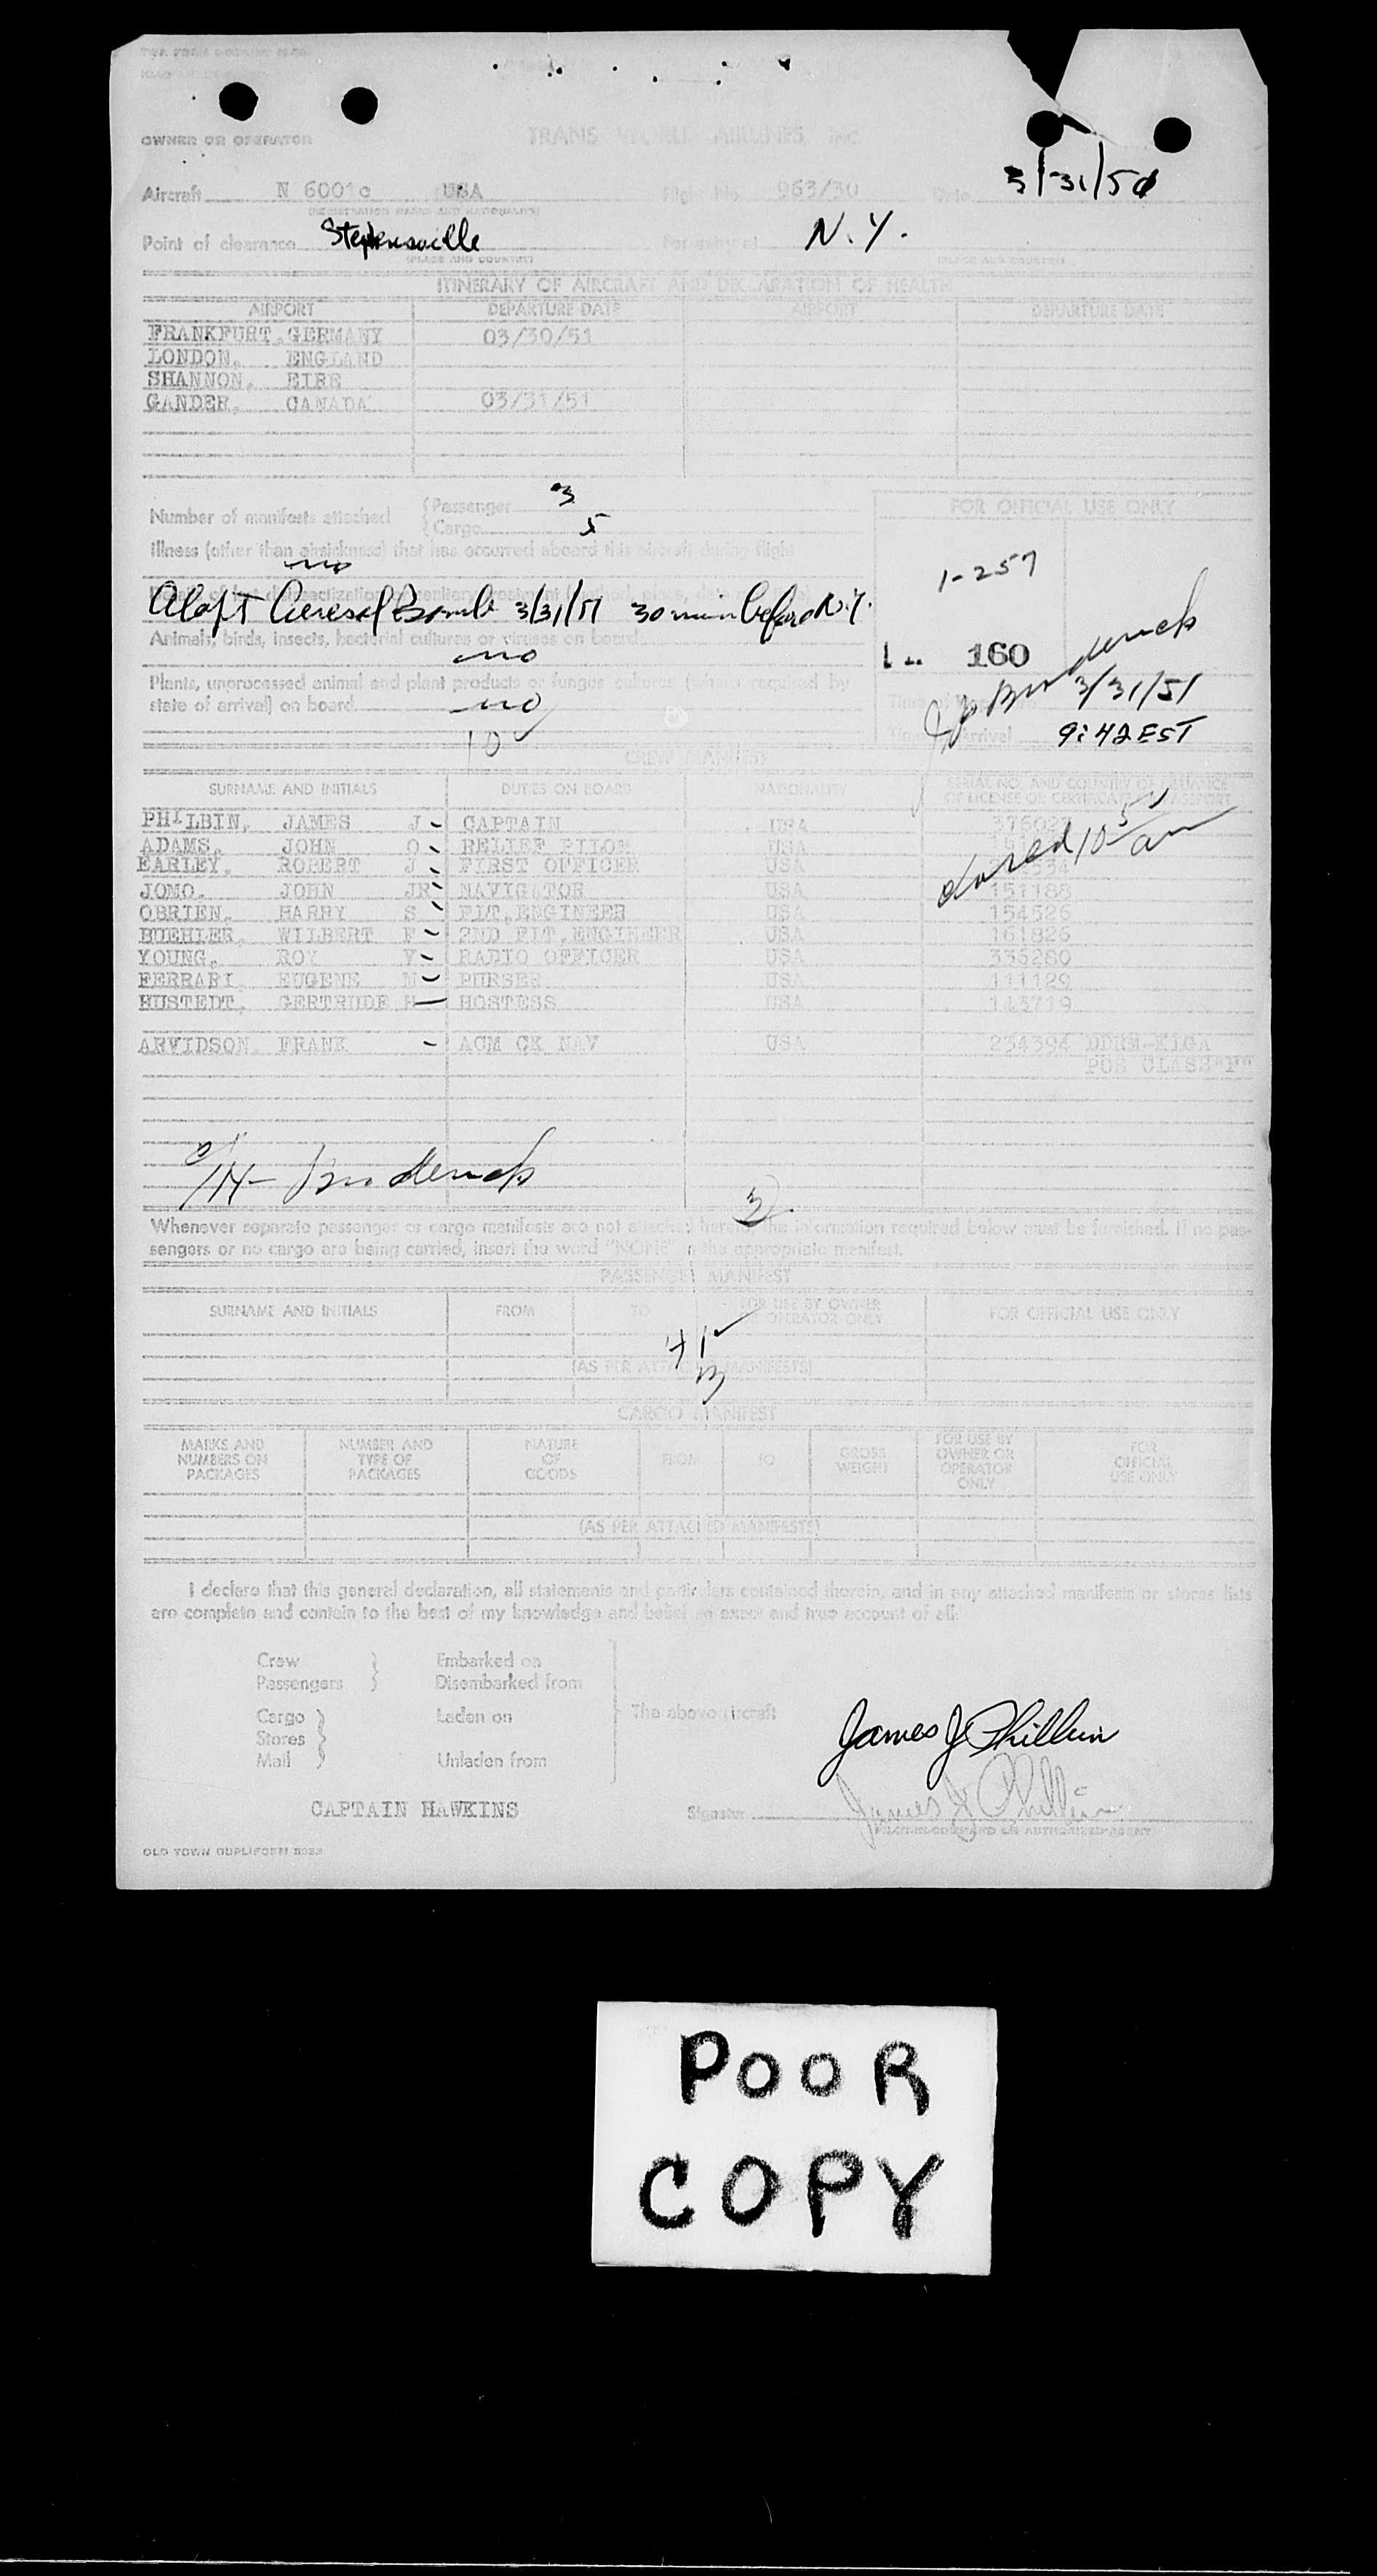 OWNER OR OPERATOR TRANS WORLD AIRLINES, INC.
3/31/51
Aircraft N 6001c USA Flight No. 963/30 Date
(REGISTRATION MARKS AND NATIONALITY)
Point of clearance Stephensville For entry at N.Y.
(PLACE AND COUNTRY) (PLACE AND COUNTRY)
ITINERARY OF AIRCRAFT AND DECLARATION OF HEALTH
AIRPORT DEPARTURE DATE AIRPORT DEPARTURE DATE
FRANKFURT, GERMANY 03/30/51
LONDON, ENGLAND
SHANNON, EIRE
GANDER, CANADA 03/31/51
FOR OFFICIAL USE ONLY
Number of manifests attached
Passenger 3
Cargo 5
Illness (other than airsickness) that has occurred aboard this aircraft during flight
no
1-257
Aloft Aerosol Bomb 3/31/51 30 min before N.Y.
Animals, birds, insects, bacterial cultures or viruses on board
no
1 - 160
Plants, unprocessed animal and plant products or fungus cultures (where required by
state of arrival) on board no
3/31/51
Arrival 9:42 EST
10
CREW MANIFEST
SURNAME AND INITIALS DUTIES ON BOARD NATIONALITY SERIAL NO. AND COUNTRY OF ISSUANCE
OF LICENSE OR CERTIFICATE
PHILBIN, JAMES J CAPTAIN USA
ADAMS, JOHN O RELIEF PILOT USA
EARLEY, ROBERT J FIRST OFFICER USA
JOMO, JOHN JR NAVIGATOR USA 151188
OBRIEN, HARRY S FLT.ENGINEER USA 154526
BUEHLER, WILBERT F 2ND FLT.ENGINEER USA 161826
YOUNG, ROY V RADIO OFFICER USA 336280
FERRARI EUGENE M PURSER USA 111129
HUSTEDT, GERTRUDE H HOSTESS USA 143719
ARVIDSON FRANK ACM CK NAV USA 234394
POS CLASS "F"
Broderick
3
Whenever separate passenger or cargo manifests are not attached hereto, the information required below must be furnished. If no pas-
sengers or no cargo are being carried, insert the word "NONE" in the appropriate manifest.
PASSENGER MANIFEST
SURNAME AND INITIALS FROM TO FOR USE BY OWNER
OR OPERATOR ONLY FOR OFFICIAL USE ONLY
(AS PER ATTACHED MANIFESTS)
CARGO MANIFEST
MARKS AND
NUMBERS ON
PACKAGES
NUMBER AND
TYPE OF
PACKAGES
NATURE
OF
GOODS
FROM
TO
GROSS
WEIGHT
FOR USE BY
OWNER OR
OPERATOR
ONLY
FOR
OFFICIAL
USE ONLY
(AS PER ATTACHED MANIFESTS)
I declare that this general declaration, all statements and particulars contained therein, and in any attached manifests or stores lists
are complete and contain to the best of my knowledge and belief an exact and true account of all:
Crew Embarked on
Passengers Disembarked from
Cargo Laden on The above aircraft
Stores
Mail Unladen from
James J Philbin
CAPTAIN HAWKINS Signature James J Philbin
PILOT-IN-COMMAND OR AUTHORIZED AGENT
OLD TOWN DUPLIFORM
POOR
COPY